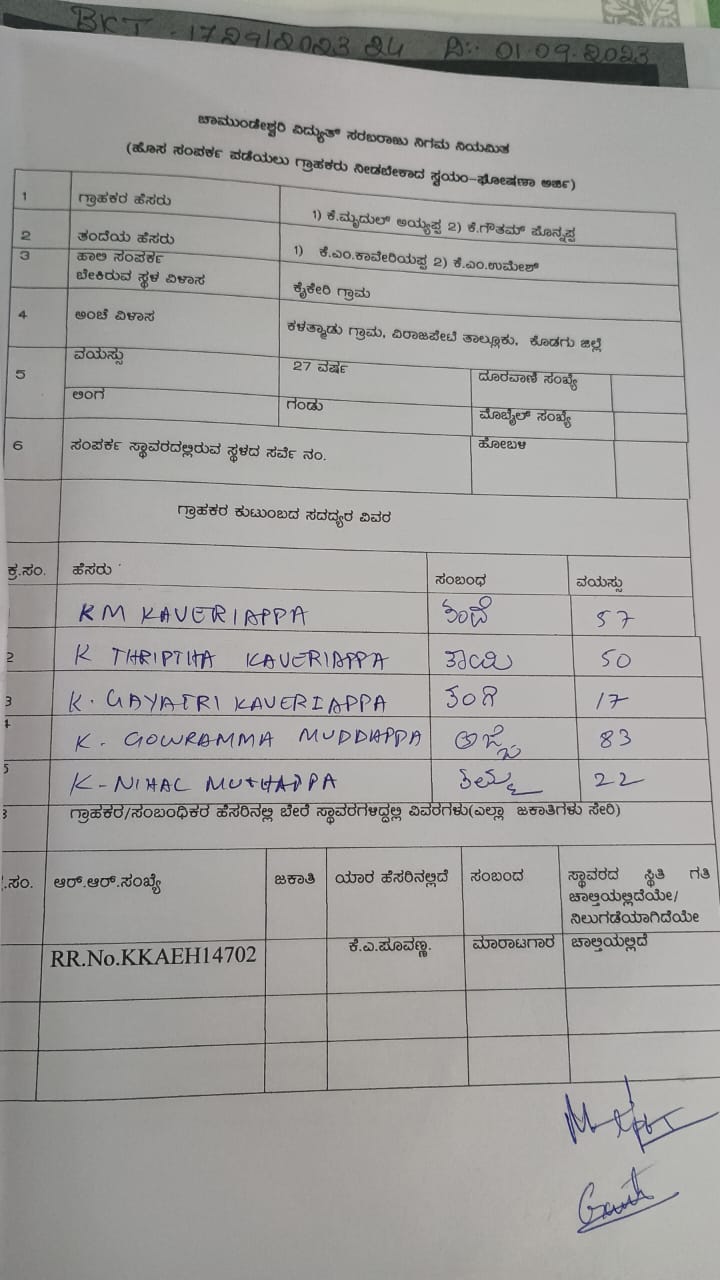 BKT-1729/2023 24 D:- 01.09.2023
ಚಾಮುಂಡೇಶ್ವರಿ ವಿದ್ಯುತ್ ಸರಬರಾಜು ನಿಗಮ ನಿಯಮಿತ
(ಹೊಸ ಸಂಪರ್ಕ ಪಡೆಯಲು ಗ್ರಾಹಕರು ನೀಡಬೇಕಾದ ಸ್ವಯಂ-ಘೋಷಣಾ ಅರ್ಜಿ)
1 ಗ್ರಾಹಕರ ಹೆಸರು 1) ಕೆ.ಮೃದುಲ್ ಅಯ್ಯಪ್ಪ 2) ಕೆ.ಗೌತಮ್ ಪೊನ್ನಪ್ಪ
2 ತಂದೆಯ ಹೆಸರು 1) ಕೆ.ಎಂ.ಕಾವೇರಿಯಪ್ಪ 2) ಕೆ.ಎಂ.ಉಮೇಶ್
3 ಹಾಲಿ ಸಂಪರ್ಕ
ಬೇಕಿರುವ ಸ್ಥಳ ವಿಳಾಸ ಕೈಕೇರಿ ಗ್ರಾಮ
4 ಅಂಚೆ ವಿಳಾಸ ಕಳತ್ಮಾಡು ಗ್ರಾಮ, ವಿರಾಜಪೇಟೆ ತಾಲ್ಲೂಕು, ಕೊಡಗು ಜಿಲ್ಲೆ
5 ವಯಸ್ಸು 27 ವರ್ಷ ದೂರವಾಣಿ ಸಂಖ್ಯೆ
ಲಿಂಗ ಗಂಡು ಮೊಬೈಲ್ ಸಂಖ್ಯೆ
6 ಸಂಪರ್ಕ ಸ್ಥಾವರದಲ್ಲಿರುವ ಸ್ಥಳದ ಸರ್ವೆ ನಂ. ಹೋಬಳಿ
ಗ್ರಾಹಕರ ಕುಟುಂಬದ ಸದಸ್ಯರ ವಿವರ
ಕ್ರ.ಸಂ. ಹೆಸರು ಸಂಬಂಧ ವಯಸ್ಸು
KM KAVERIAPPA ತಂದೆ 57
2 K THRIPTHA KAVERIAPPA ತಾಯಿ 50
3 K. GAYATRI KAVERIAPPA ತಂಗಿ 17
4 K. GOWRAMMA MUDDAPPA ಅಜ್ಜಿ 83
5 K-NIHAL MUTHAPPA ತಮ್ಮ 22
ಗ್ರಾಹಕರ/ಸಂಬಂಧಿಕರ ಹೆಸರಿನಲ್ಲಿ ಬೇರೆ ಸ್ಥಾವರಗಳಿದ್ದಲ್ಲಿ ವಿವರಗಳು(ಎಲ್ಲಾ ಜಕಾತಿಗಳು ಸೇರಿ)
.ಸಂ. ಆರ್.ಆರ್.ಸಂಖ್ಯೆ ಜಕಾತಿ ಯಾರ ಹೆಸರಿನಲ್ಲಿದೆ ಸಂಬಂದ ಸ್ಥಾವರದ ಸ್ಥಿತಿ ಗತಿ
ಚಾಲ್ತಿಯಲ್ಲಿದೆಯೇ/
ನಿಲುಗಡೆಯಾಗಿದೆಯೇ
RR.No.KKAEH14702 ಕೆ.ಎ.ಪೂವಣ್ಣ. ಮಾರಾಟಗಾರ ಚಾಲ್ತಿಯಲ್ಲಿದೆ